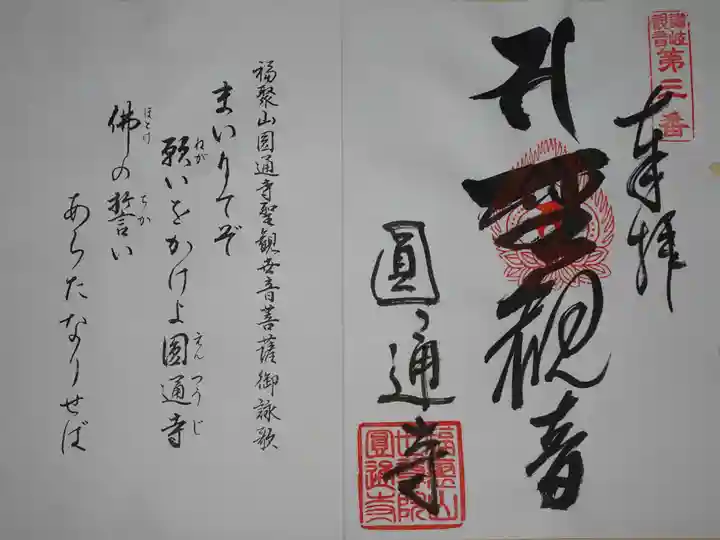 讃岐
観音
第三番
奉拝
聖観音
圓通寺
福聚山圓通寺聖観世音菩薩御詠歌
まいりてぞ
願いをかけよ圓通寺
ねが
えんつうじ
佛の誓い
ほとけ
ちか
あらたなりせば